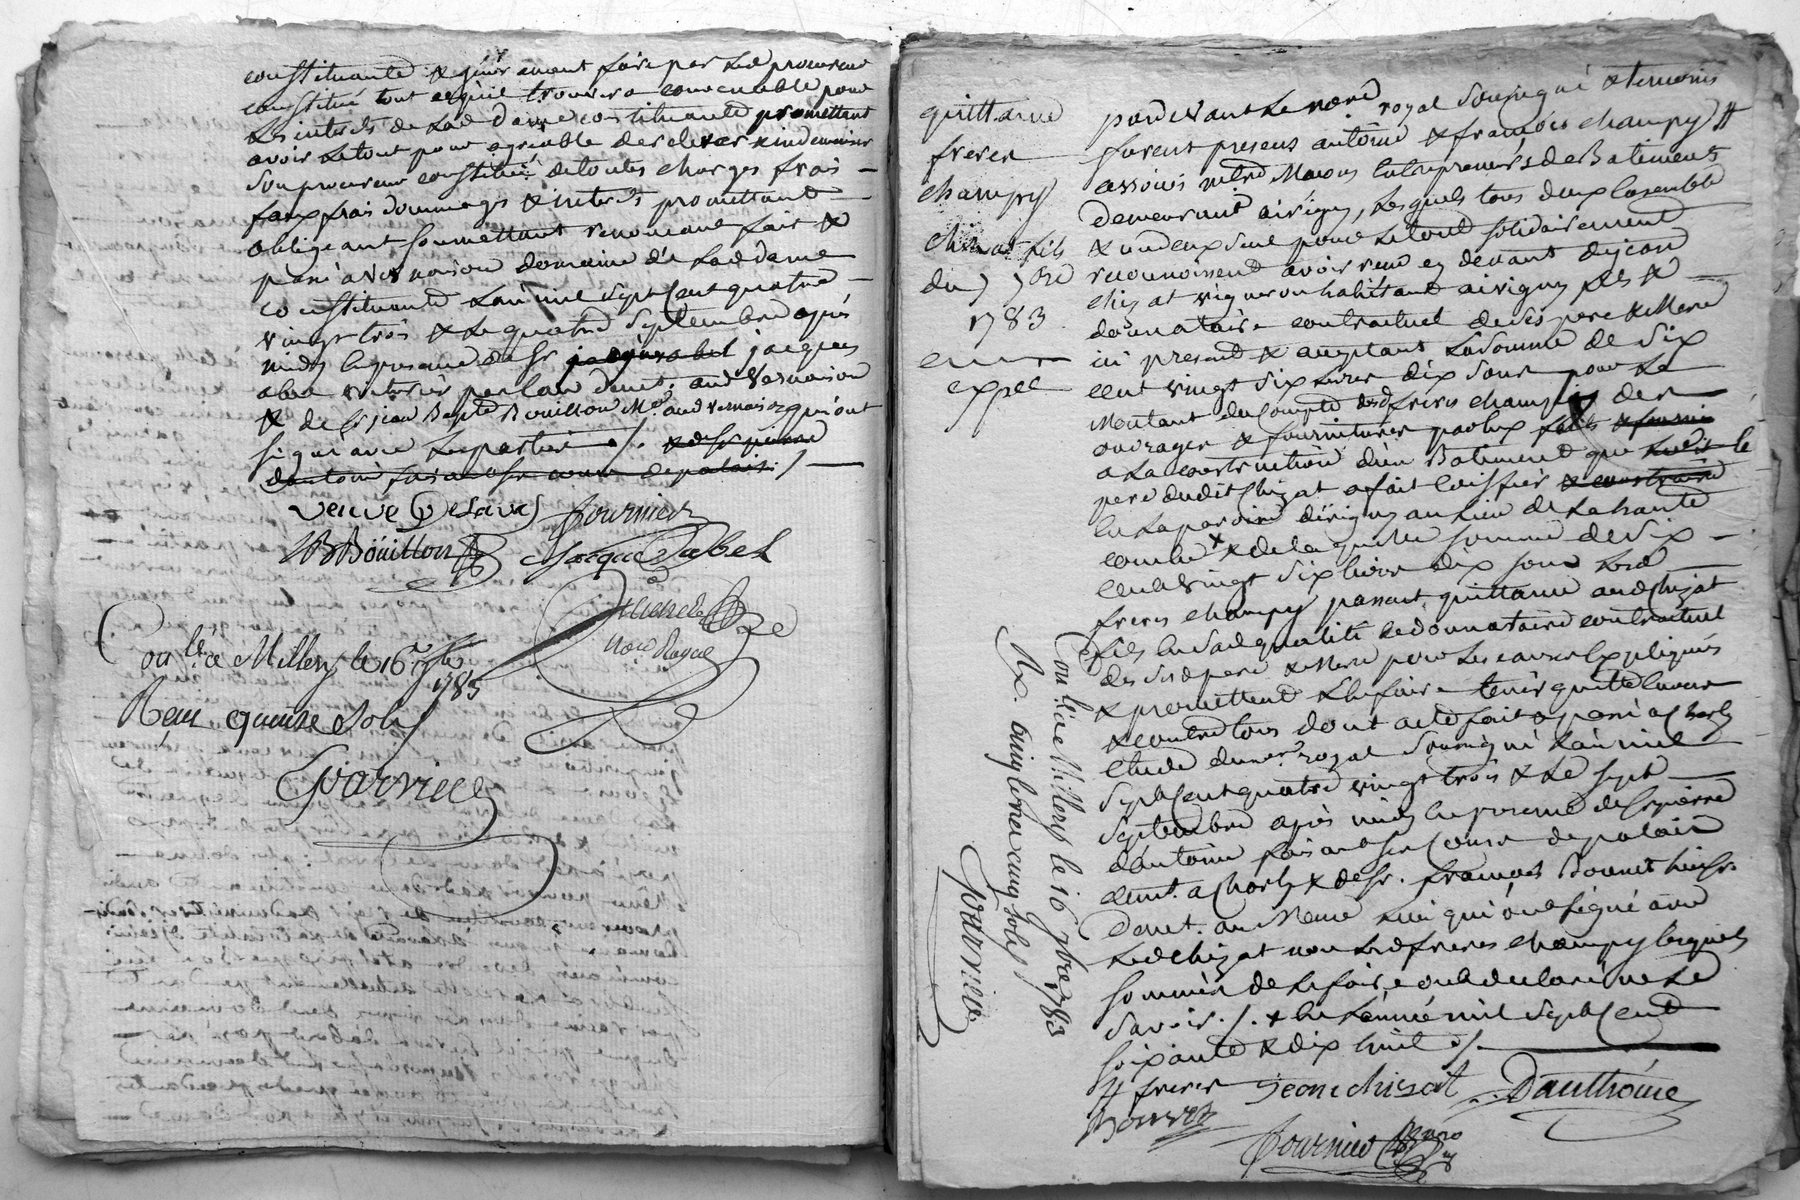 constituante & generalement faire par led procureur
constitué tout ce qu'il trouvera convenable pour
les interets de lad Dame constituante promettant
avoir le tout pour agreable de relever & indemniser
son procureur constitué de toutes charges frais
faux frais dommages & interets promettant
obligeant soumettant renoncant fait &
passé a vernaison domaine de lad dame
constituante l'an mil sept cent quatre
vingt trois & le quatre septembre après
midy en presence de Sr jacques abel jacques
abel demt. aud vernaison
& de Sr jean Bapte Bouillon Md aud vernaison qui ont
signé avec les parties ./. & de Sr pierre
dantoine faisant sa cour de palais ./
veuve Delava fournier
JB Bouillon Jacque abel
nore Royal
Con lé a Millery le 16e 7bre
1783
Reçu quinze Sols
Guarnier
quittance
freres
champy
chizat fils
du 7 7bre
1783
expee
pardevant le nore royal soussigné & temoins
furent presens antoine & françois champy #
associés Mtres Macons Entrepreneurs de Batiments
demeurant a irigny, lesquels tous deux Ensemble
& un deux seul pour le tout solidairement
reconnoissent avoir reçu cy devant de jean
chizat vigneron habitant a irigny fils &
donnataire contractuel de ses pere & Mere
ici present & acceptant la somme de six
cent vingt six livres dix sous pour le
Montant du compte desd freres champy des
ouvrages & fournitures par eux faits & fournis
a la construction d'un Batiment que led le
pere dudit chizat a fait Ediffier & construire
En la paroisse dirigny au lieu de la haute
combe x & de laquelle somme de six
cent vingt six livres dix sous lesd
freres champy passent quittance aud chizat
fils En sad qualité de donnataire contractuel
des sesd pere & Mere pour les causes Expliquées
& promettent Enfaire tenir quitte Envers
& contre tous dont acte fait & passé a charly
Etude du nore royal soussigné l'an mil
sept cent quatre vingt trois & le sept
septembre après midy En presence de Sr pierre
dantoine faisant sa cour de palais
demt. a charly & de Sr. françois Bonnet huissr
demt. au Meme lieu qui ont signé avec
led chizat non lesd freres champy lesquels
sommés de le faire ont declaré ne le
savoir ./. x En l'année mil sept cent
soixante & dix huit ./.
# freres Jean chizat Dauthoine
Bonnet
fournier nore
Con lé a Millery le 16 7bre 1783
Rx. cinq livres cinq sols
Guarnier